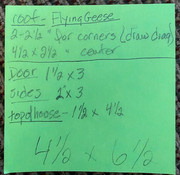 roof - Flying Geese
2-2½" for corners (draw diag)
4½ x 2½ = center
Door 1½ x 3
sides 2" x 3
top of house - 1½ x 4½
4½ x 6½